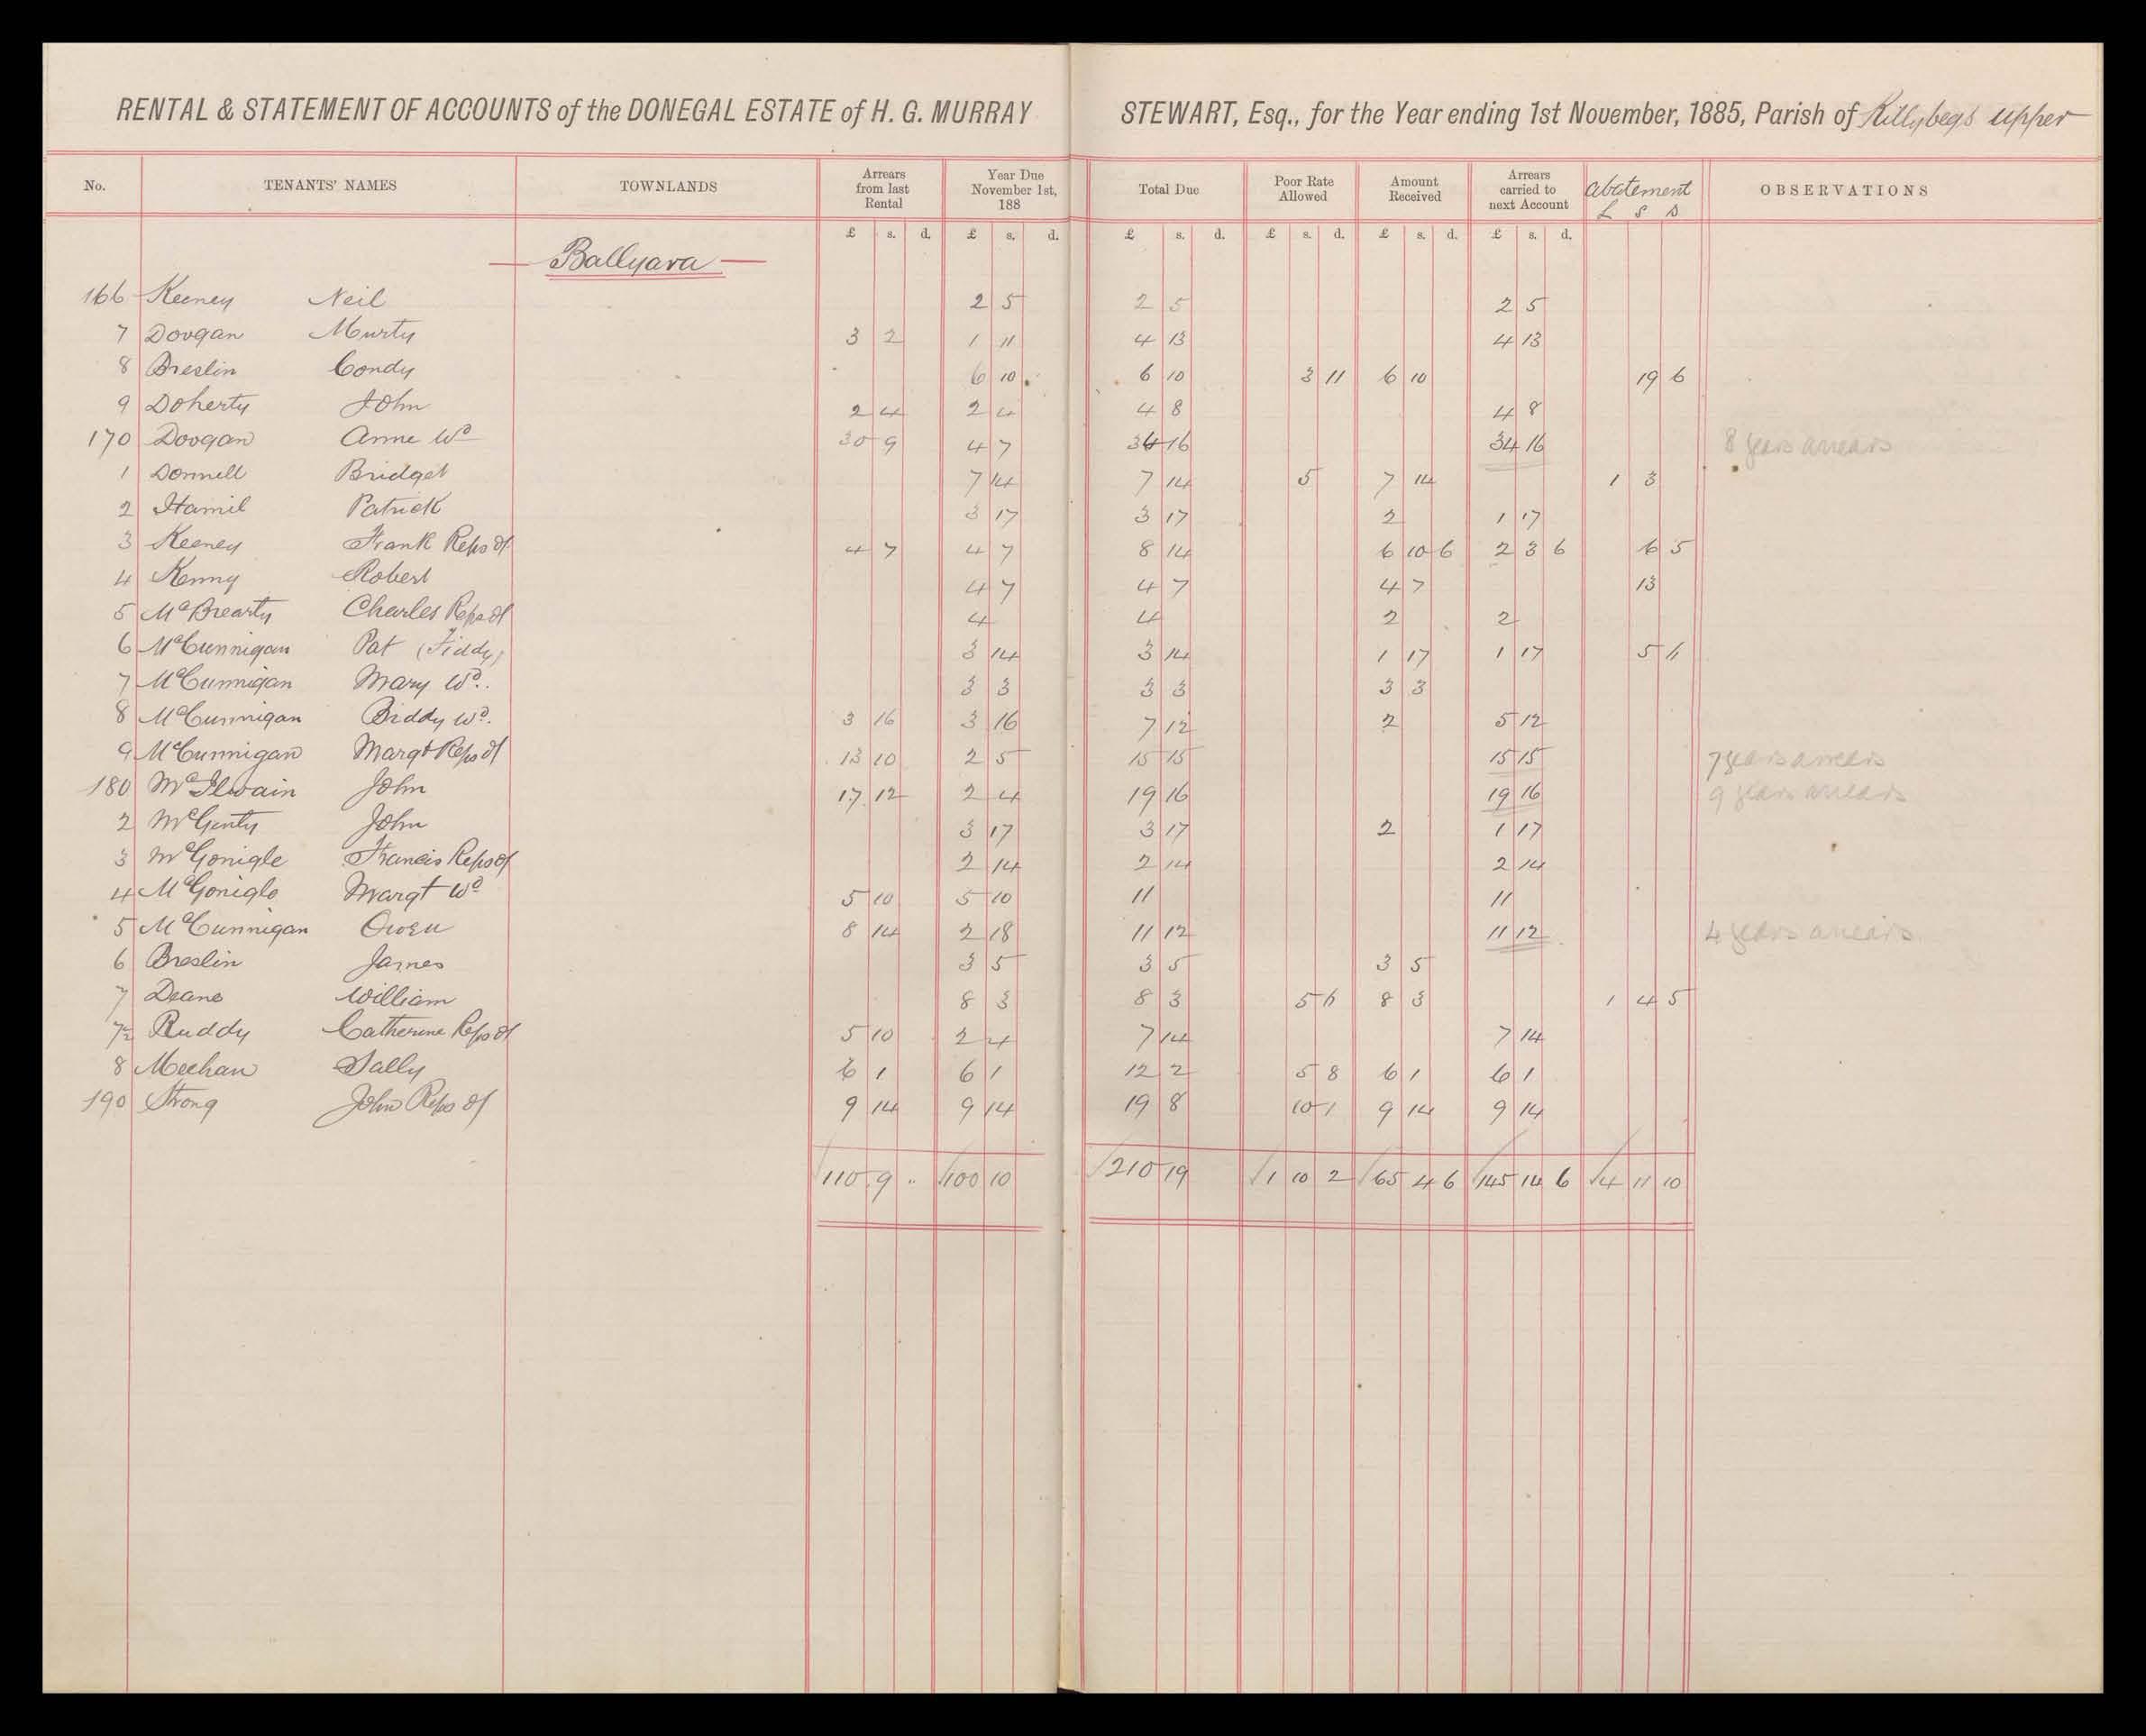 RENTAL & STATEMENT OF ACCOUNTS of the DONEGAL ESTATE of H. G. MURRAY STEWART, Esq., for the Year ending 1st November, 1885, Parish of Killybegs upper
No. TENANTS' NAMES TOWNLANDS Arrears from last Rental Year Due November 1st, 188 Total Due Poor Rate Allowed Amount Received Arrears carried to next Account Abatement £ S D OBSERVATIONS
£ s. d. £ s. d. £ s. d. £ s. d. £ s. d. £ s. d.
Ballyara
166 Keeney Neil 2 5 2 5 2 5
7 Doogan Murty 3 2 1 11 4 13 4 13
8 Breslin Condy 6 10 6 10 3 11 6 10 19 6
9 Doherty John 2 4 2 4 4 8 4 8
170 Doogan Anne Wd 30 9 4 7 34 16 34 16 8 years arrears
1 Donnell Bridget 7 14 7 14 5 7 14 1 3
2 Hamil Patrick 3 17 3 17 2 1 17
3 Keeney Frank Reps of 4 7 4 7 8 14 6 10 6 2 3 6 6 5
4 Kenny Robert 4 7 4 7 4 7 13
5 McBrearty Charles Reps of 4 4 2 2
6 McCunnigan Pat (Fiddy) 3 14 3 14 1 17 1 17 5 6
7 McCunnigan Mary Wd. 3 3 3 3 3 3
8 McCunnigan Biddy Wd. 3 16 3 16 7 12 2 5 12
9 McCunnigan Margt Reps of 13 10 2 5 15 15 15 15 7 years arrears
180 McIlwain John 17 12 2 4 19 16 19 16 9 years arrears
2 McGinty John 3 17 3 17 2 1 17
3 McGonigle Francis Reps of 2 14 2 14 2 14
4 McGonigle Margt Wd 5 10 5 10 11 11
5 McCunnigan Owen 8 14 2 18 11 12 11 12 4 years arrears
6 Breslin James 3 5 3 5 3 5
7 Deane William 8 3 8 3 5 6 8 3 1 4 5
7½ Ruddy Catherine Reps of 5 10 2 4 7 14 7 14
8 Meehan Sally 6 1 6 1 12 2 5 8 6 1 6 1
190 Strong John Reps of 9 14 9 14 19 8 10 1 9 14 9 14
110 9 " 100 10 210 19 1 10 2 65 4 6 145 14 6 4 11 10